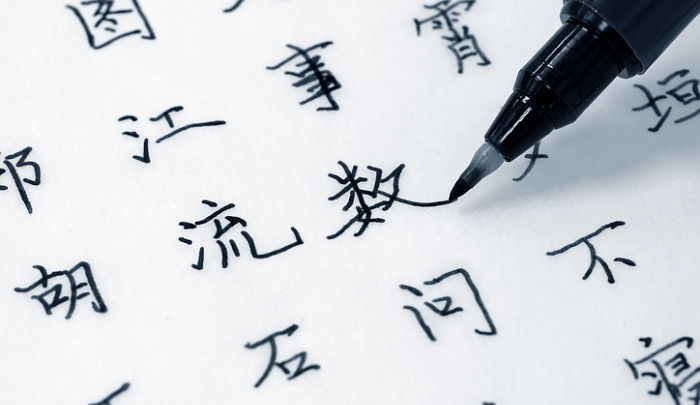 图
江 事 霄
胡 流 数 垣
石 问 不